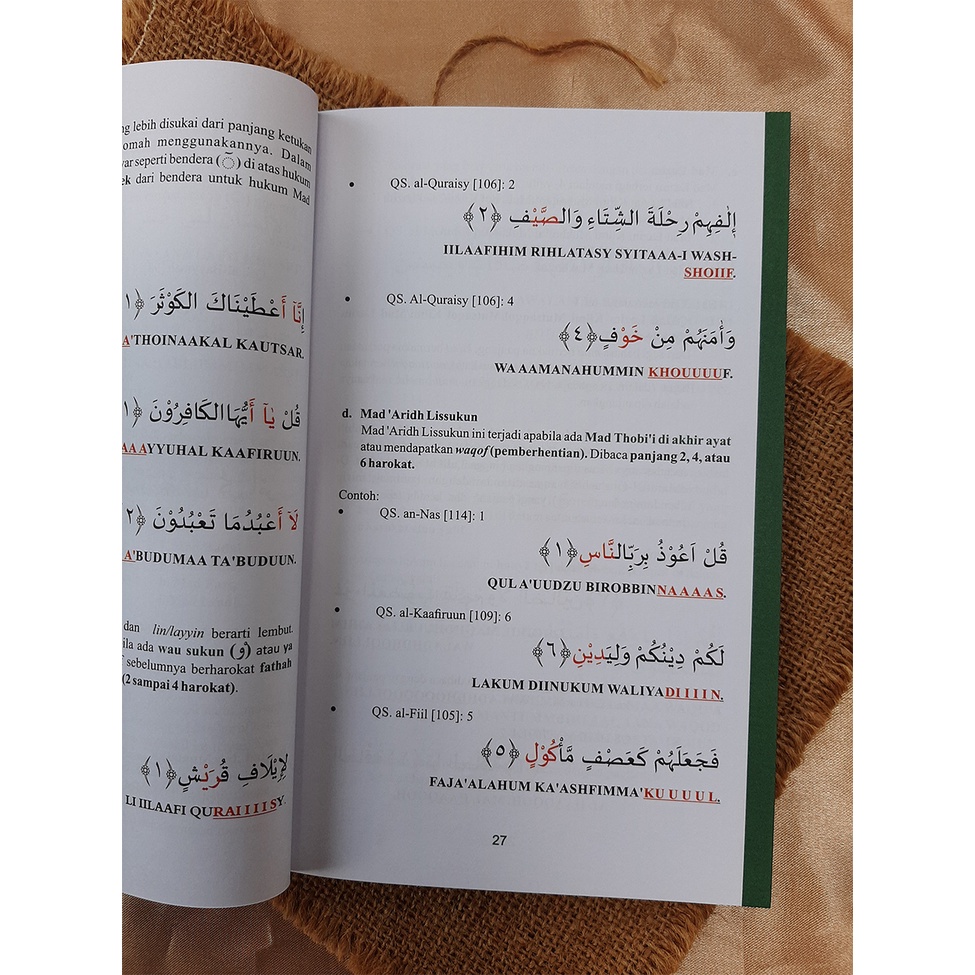 lebih disukai dari panjang ketukan
menggunakannya. Dalam
seperti bendera (ـٓ) di atas hukum
dari bendera untuk hukum Mad
إِنَّآ أَعْطَيْنَاكَ الكَوْثَرَ ﴿١
A'THOINAAKAL KAUTSAR.
قُلْ يٰآ أَيُّهَاالكَافِرُوْنَ ﴿١
AAAYYUHAL KAAFIRUUN.
لَآ أَعْبُدُمَا تَعْبُدُوْنَ ﴿٢
A'BUDUMAA TA'BUDUUN.
dan lin/layyin berarti lembut.
ada wau sukun (وْ) atau ya
sebelumnya berharokat fathah
(2 sampai 4 harokat).
لِإِيْلَافِ قُرَيْشٍ ﴿١﴾
LI IILAAFI QURAIIIISY.
• QS. al-Quraisy [106]: 2
إٖلٰفِهِمْ رِحْلَةَ الشِّتَاءِ وَالصَّيْفِ ﴿٢﴾
IILAAFIHIM RIHLATASY SYITAAA-I WASH-
SHOIIF.
• QS. Al-Quraisy [106]: 4
وَأٰمَنَهُمْ مِنْ خَوْفٍ ﴿٤﴾
WA AAMANAHUMMIN KHOUUUUF.
d. Mad 'Aridh Lissukun
Mad 'Aridh Lissukun ini terjadi apabila ada Mad Thobi'i di akhir ayat
atau mendapatkan waqof (pemberhentian). Dibaca panjang 2, 4, atau
6 harokat.
Contoh:
• QS. an-Nas [114]: 1
قُلْ اَعُوْذُ بِرَبِّالنَّاسِ ﴿١﴾
QUL A'UUDZU BIROBBINNAAAAS.
• QS. al-Kaafiruun [109]: 6
لَكُمْ دِيْنُكُمْ وَلِيَدِيْنِ ﴿٦﴾
LAKUM DIINUKUM WALIYADIIIIN.
• QS. al-Fiil [105]: 5
فَجَعَلَهُمْ كَعَصْفٍ مَّأْكُوْلٍ ﴿٥﴾
FAJA'ALAHUM KA'ASHFIMMA'KUUUUL.
27